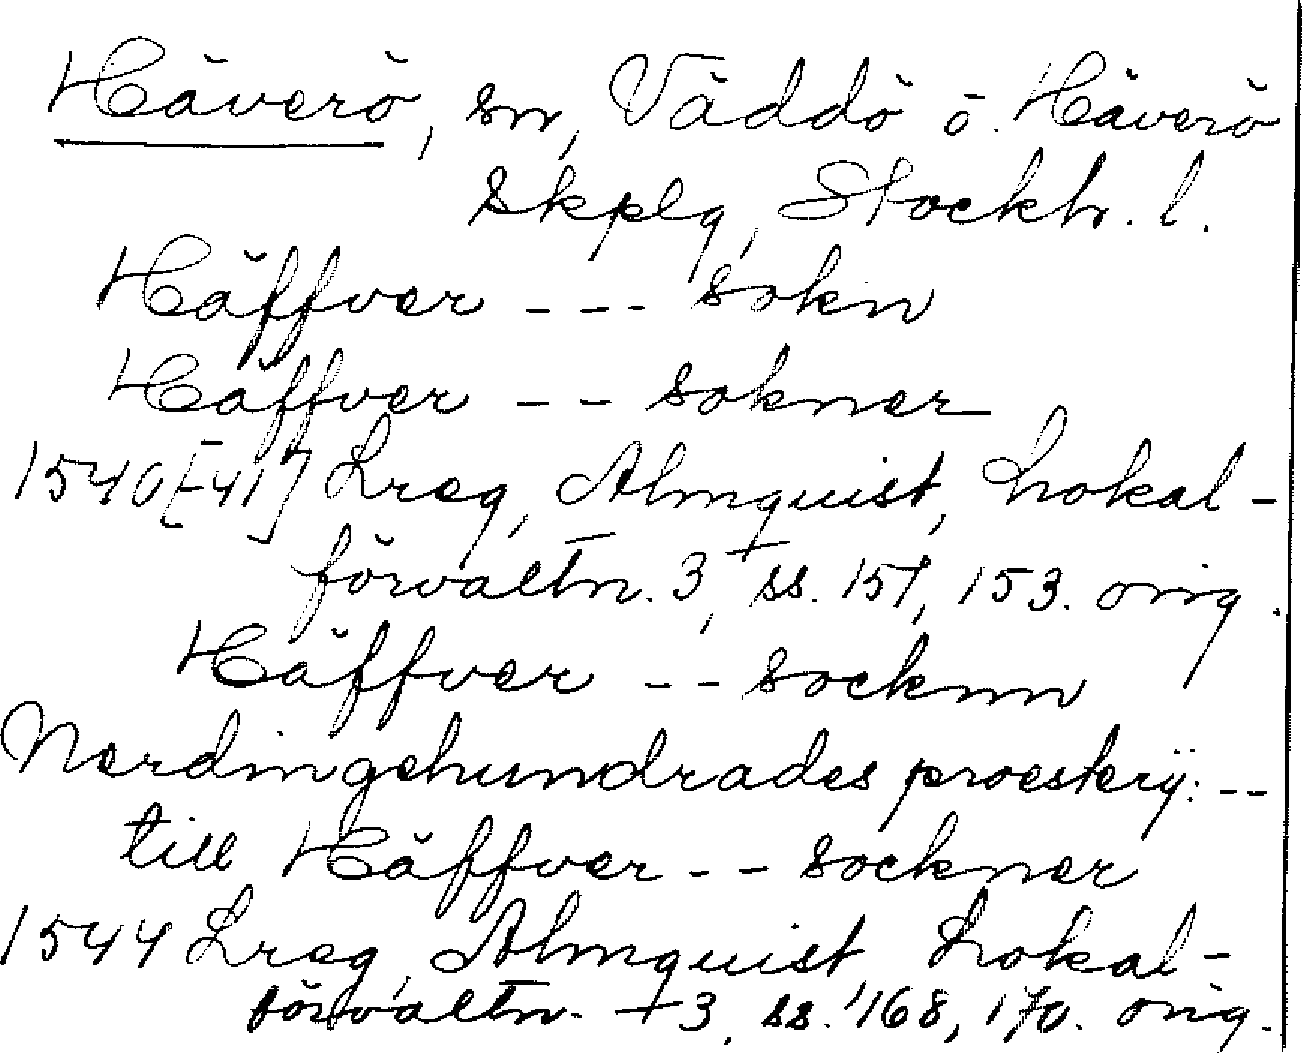 Häverö, sn, Väddö o. Häverö
skplg, Stockh. l.
Häffver --- sokn
Häffver -- sokner
1540[-41] Lreg, Almquist, Lokal-
förvaltn. 3, ss. 151, 153. orig.
Häffver -- socknn
Nerdingehundrades proestery: --
till Häffver -- sockner
1544 Lreg, Almquist, Lokal-
förvaltn. 3, ss. 168, 170. orig.